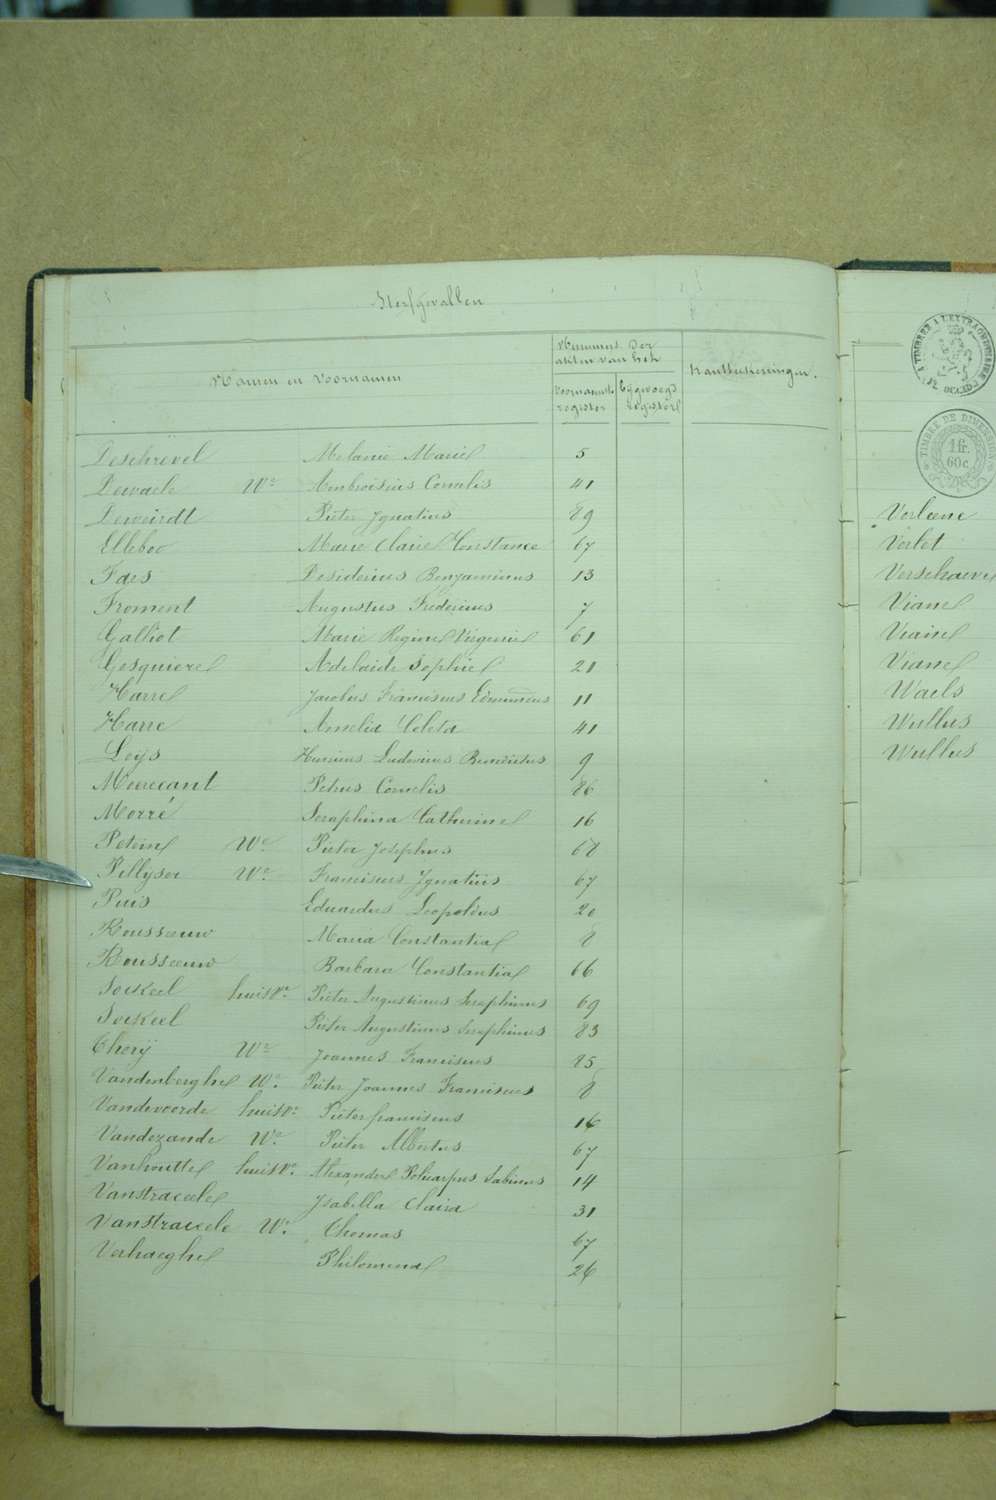 Sterfgevallen
Namen en Voornamen
Nummers der
akten van het
Voornaamst
register
bijgevoegd
register
Kantteekeningen.
Deschrevel Melanie Marie 5
Dewaele We Ambroisius Cornelis 41
Deweirdt Pieter Ignatius 89
Elleboo Marie Claire Constance 67
Faes Desiderius Benjaminus 13
Froment Augustus Fredericus 7
Galliot Marie Regine Virgenie 61
Gesquiere Adelaide Sophie 21
Harre Jacobus Franciscus Edmundus 11
Harre Amelia Coleta 41
Leÿs Henricus Ludovicus Benedictus 9
Meerecant Petrus Cornelis 86
Morré Seraphina Catherine 16
Petein We Pieter Josephus 68
Pillyser We Franciscus Ignatius 67
Puis Eduardus Leopoldus 20
Rousseeuw Maria Constantia 8
Rousseeuw Barbara Constantia 66
Sockeel huisve Pieter Augustinus Seraphinus 69
Sockeel Pieter Augustinus Seraphinus 83
Therÿ We Joannes Franciscus 85
Vandenberghe We Pieter Joannes Franciscus 8
Vandevoorde huisve Pieter franciscus 16
Vandezande We Pieter Albertus 67
Vanhoutte huisve Alexander Policarpus Sabinus 14
Vanstraceele Isabella Claira 31
Vanstraceele We Thomas 67
Verhaeghe Philomena 26
TIMBRE A L'EXTRAORDINAIRE
TIMBRE DE DIMENSION
1 fr.
60 c.
Verleene
Verlet
Verschaeve
Viane
Viaine
Viane
Waels
Wullus
Wullus